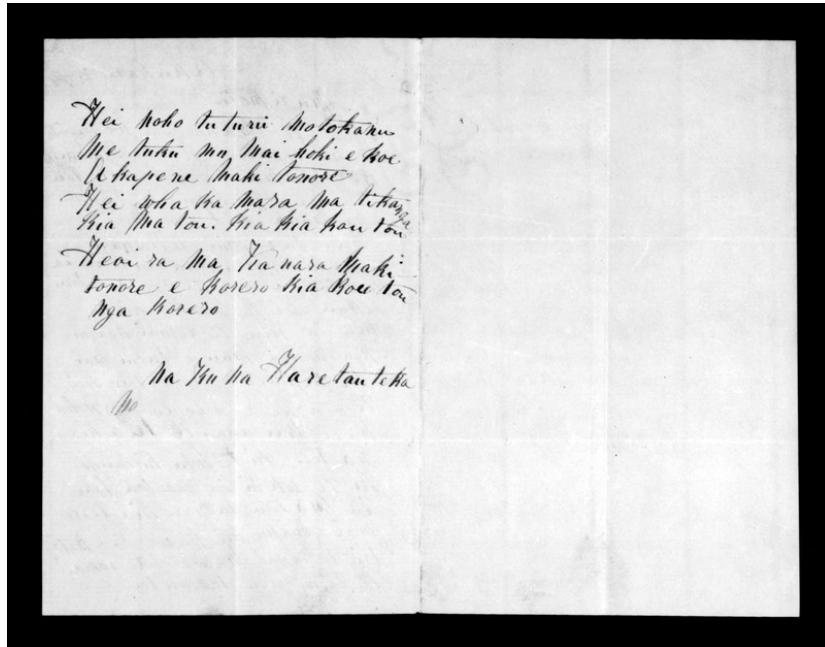 Hei noho tuturu motokanu
Me tuku mu mai hoki e koe
A kapene Maki tonore
Hei wha ka mara ma tikanga
kia Ma tou. kia kia kau tou
Heoi ra ma Ka nara Maki
tonore e korero kia kou tou
nga korero
Na Ku na Haretauteka
No